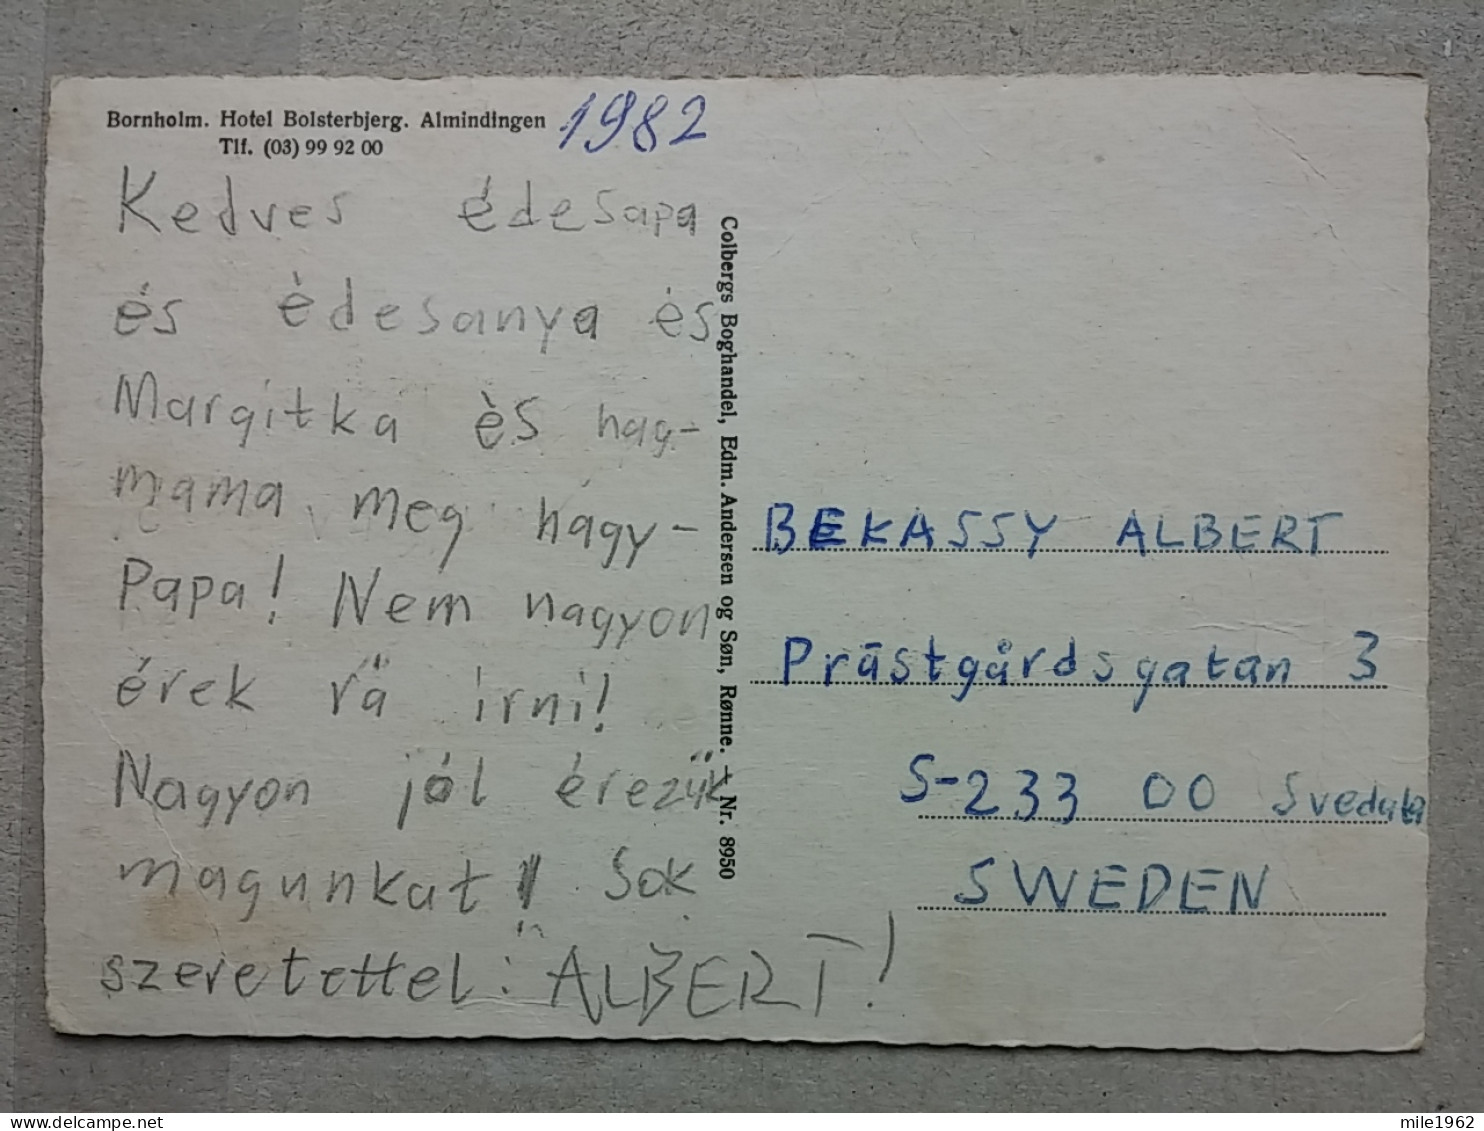 Bornholm. Hotel Bolsterbjerg. Almindingen
Tlf. (03) 99 92 00
1982
Kedves édesapa
és èdesanya ès
Margitka ès hag-
mama meg hagy-
Papa! Nem nagyon
érek rä irni!
Nagyon jól érezük
magunkat! Sok
szeretettel: ALBERT!
Colbergs Boghandel, Edm. Andersen og Søn, Rønne. — Nr. 8950
BEKASSY ALBERT
Prästgårdsgatan 3
S-233 00 Svedala
SWEDEN
mile1962